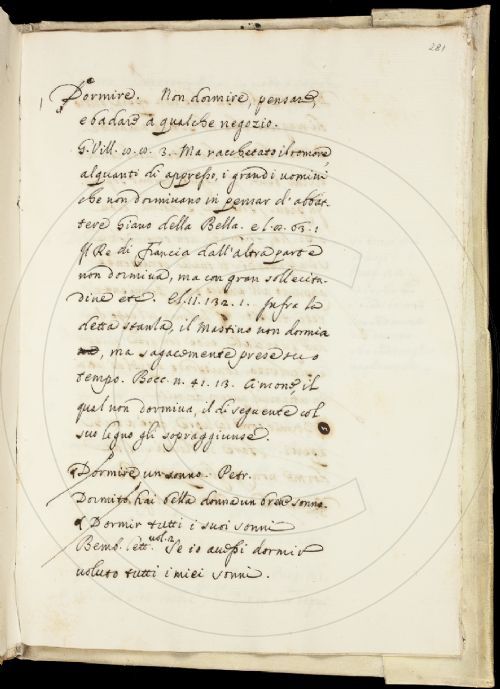 281
Dormire. Non dormire, pensare,
e badare a qualche negozio.
G. Vill. 3. Ma racchetato il romore,
alquanti di appresso, i grandi uomini
che non dormivano in pensar d'abbat-
tere Giano della Bella. e l. 8. 63. 1
Il Re di Francia dall'altra parte
non dormiva, ma con gran sollecitu-
dine etc. E l. 11. 132. 1. Infra la
detta stanza, il Mastino non dormia
, ma sagacemente prese suo
tempo. Bocc. n. 41. 13. Cimone, il
qual non dormiva, il dì seguente col
suo legno gli sopraggiunse.
Dormire un sonno. Petr.
Dormito hai bella donna un breve sonno.
Dormir tutti i suoi sonni
Bemb. lett. vol. 2. Se io avessi dormir
voluto tutti i miei sonni.